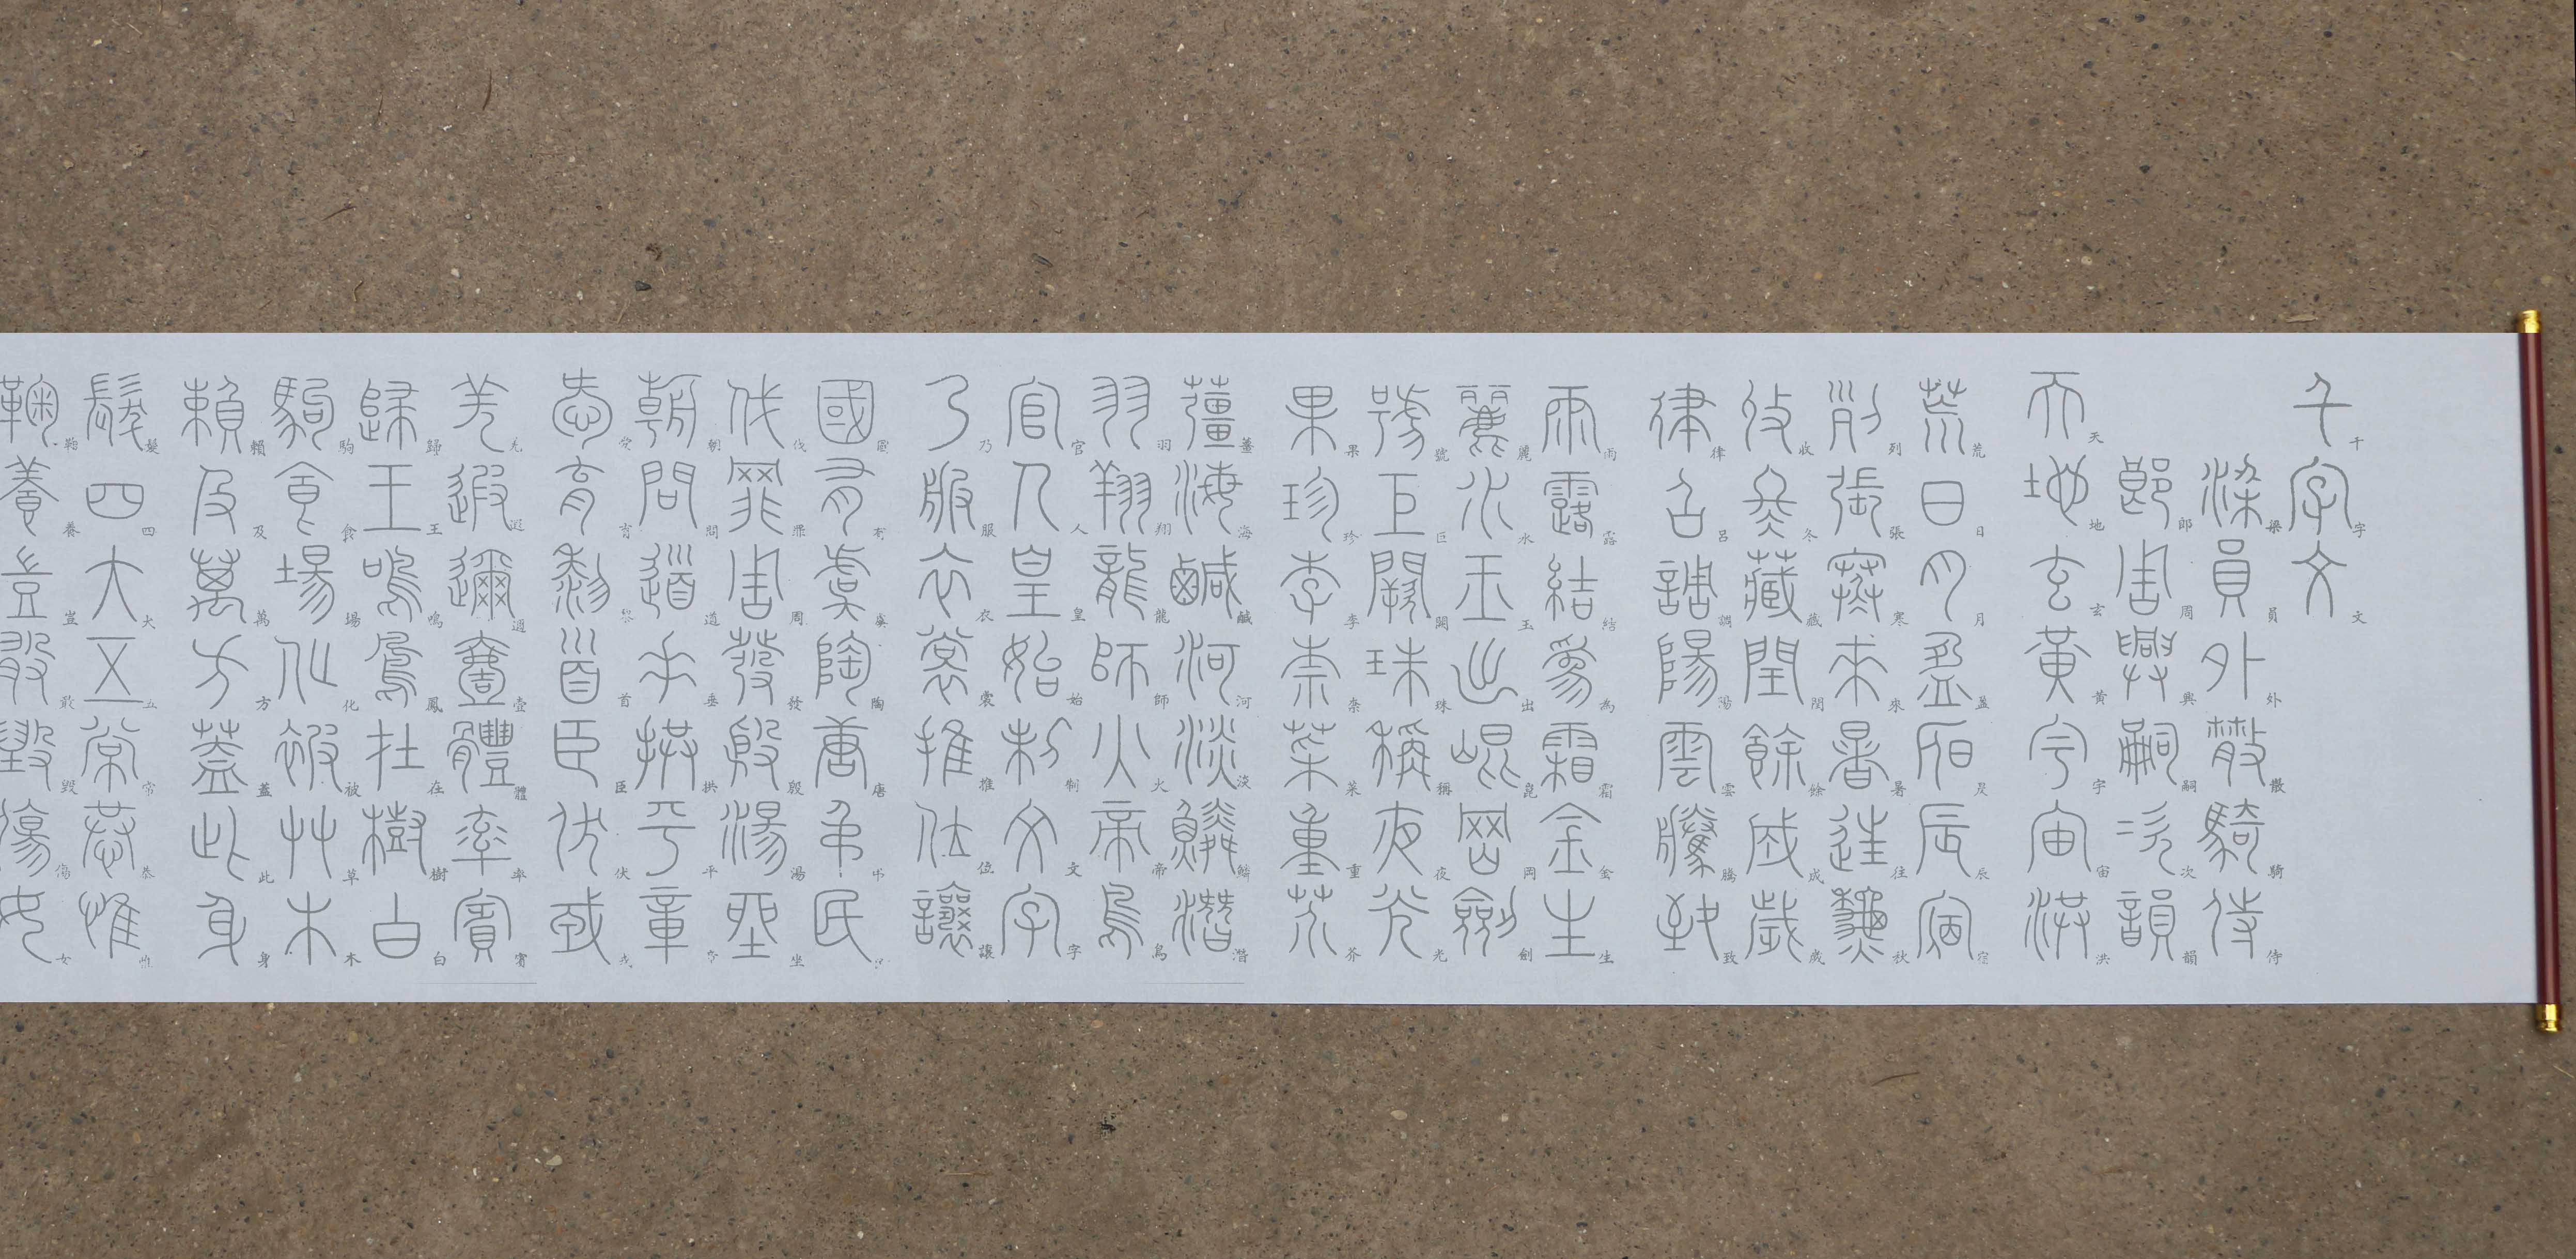 千字文
梁員外散騎侍
郎周興嗣次韻
天地玄黃宇宙洪
荒日月盈昃辰宿
列張寒來暑往秋
收冬藏閏餘成歲
律呂調陽雲騰致
雨露結為霜金生
麗水玉出崑岡劍
號巨闕珠稱夜光
果珍李柰菜重芥
薑海鹹河淡鱗潛
羽翔龍師火帝鳥
官人皇始制文字
乃服衣裳推位讓
國有虞陶唐弔民
伐罪周發殷湯坐
朝問道垂拱平章
愛育黎首臣伏戎
羌遐邇壹體率賓
歸王鳴鳳在樹白
駒食場化被草木
賴及萬方蓋此身
髮四大五常恭惟
鞠養豈敢毀傷女